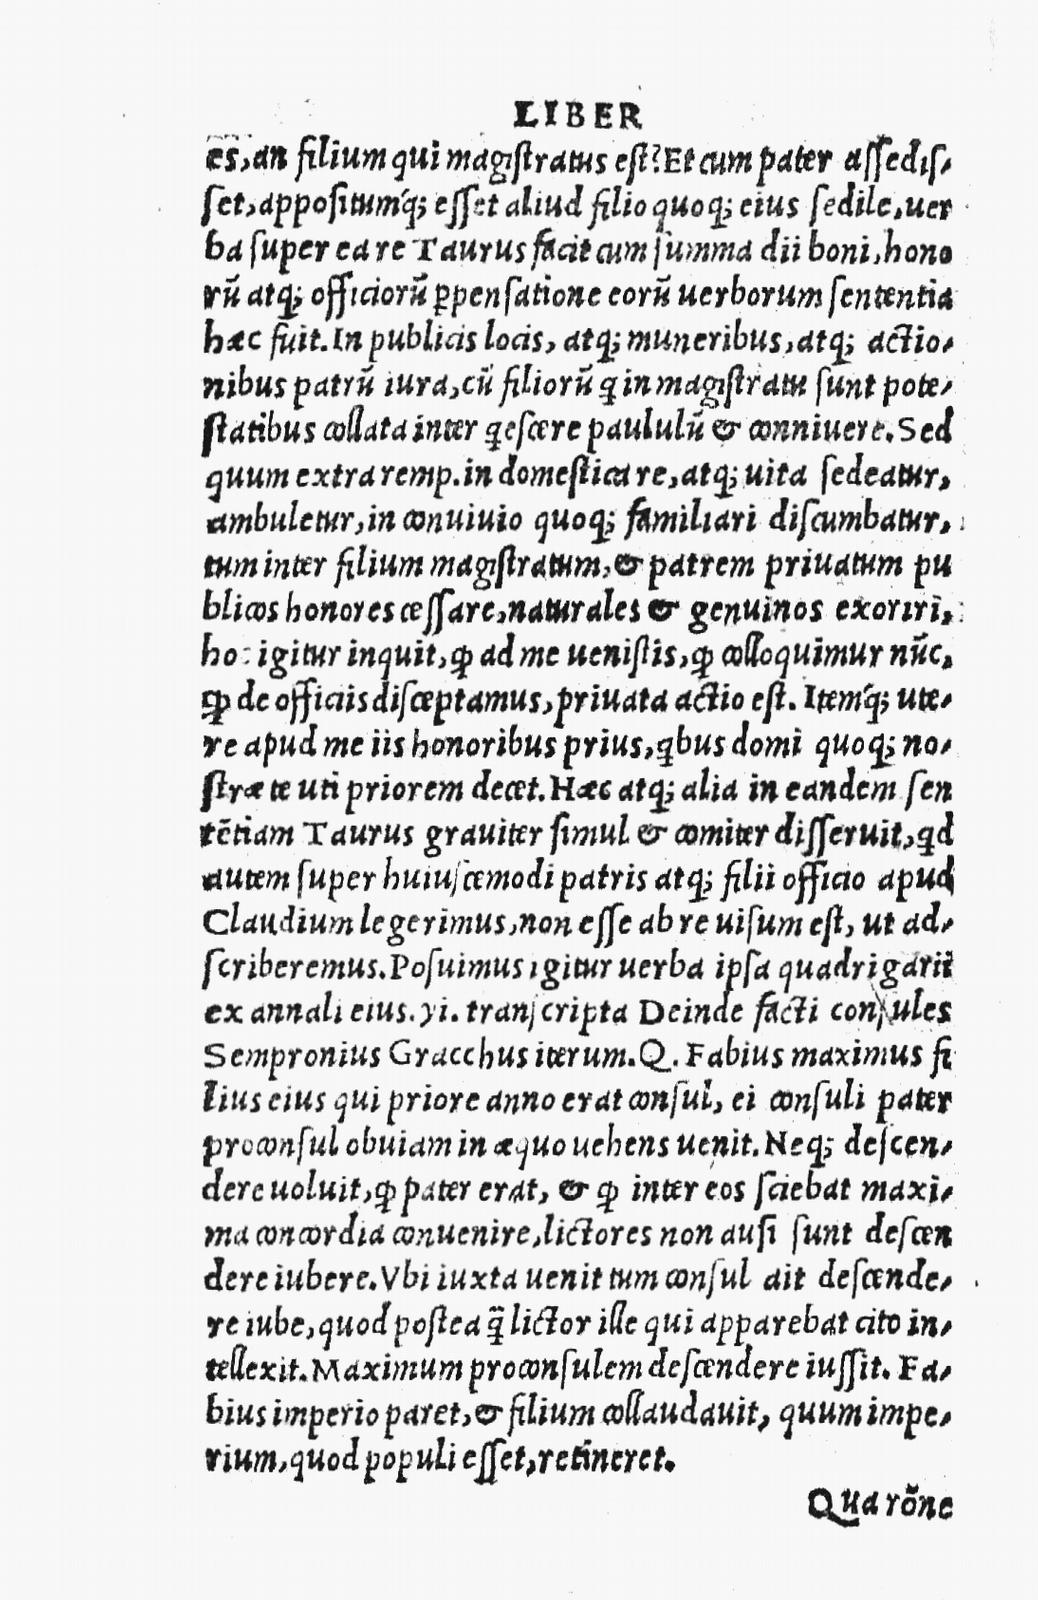 LIBER
es, an filium qui magistratus est? Et cum pater assedis,
set, appositumq́; esset aliud filio quoq; eius sedile, uer
ba super ea re Taurus facit cum summa dii boni, hono
rũ atq; officiorũ ꝑpensatione eorũ uerborum sententia
hæc fuit. In publicis locis, atq; muneribus, atq; actio,
nibus patrũ iura, cũ filiorũ q in magistratu sunt pote,
statibus collata inter qescere paululũ & conniuere. Sed
quum extra remp. in domestica re, atq; uita sedeatur,
ambuletur, in conuiuio quoq; familiari discumbatur,
tum inter filium magistratum, & patrem priuatum pu
blicos honores cessare, naturales & genuinos exoriri,
hoc igitur inquit, ꝙ ad me uenistis, ꝙ colloquimur nũc,
ꝙ de officiis disceptamus, priuata actio est. Itemq́; ute,
re apud me iis honoribus prius, qbus domi quoq; no,
stræ te uti priorem decet. Hæc atq; alia in eandem sen
tẽtiam Taurus grauiter simul & comiter disseruit, qd
autem super huiuscemodi patris atq; filii officio apud
Claudium legerimus, non esse ab re uisum est, ut ad,
scriberemus. Posuimus igitur uerba ipsa quadrigarii
ex annali eius. yi. transcripta Deinde facti consules
Sempronius Gracchus iterum. Q. Fabius maximus fi
lius eius qui priore anno erat consul, ei consuli pater
proconsul obuiam in æquo uehens uenit. Neq; descen,
dere uoluit, ꝙ pater erat, & ꝙ inter eos sciebat maxi,
ma concordia conuenire, lictores non ausi sunt descen
dere iubere. Vbi iuxta uenit tum consul ait descende,
re iube, quod postea q̃ lictor ille qui apparebat cito in,
tellexit. Maximum proconsulem descendere iussit. Fa,
bius imperio paret, & filium collaudauit, quum impe,
rium, quod populi esset, retineret.
Qua rõne